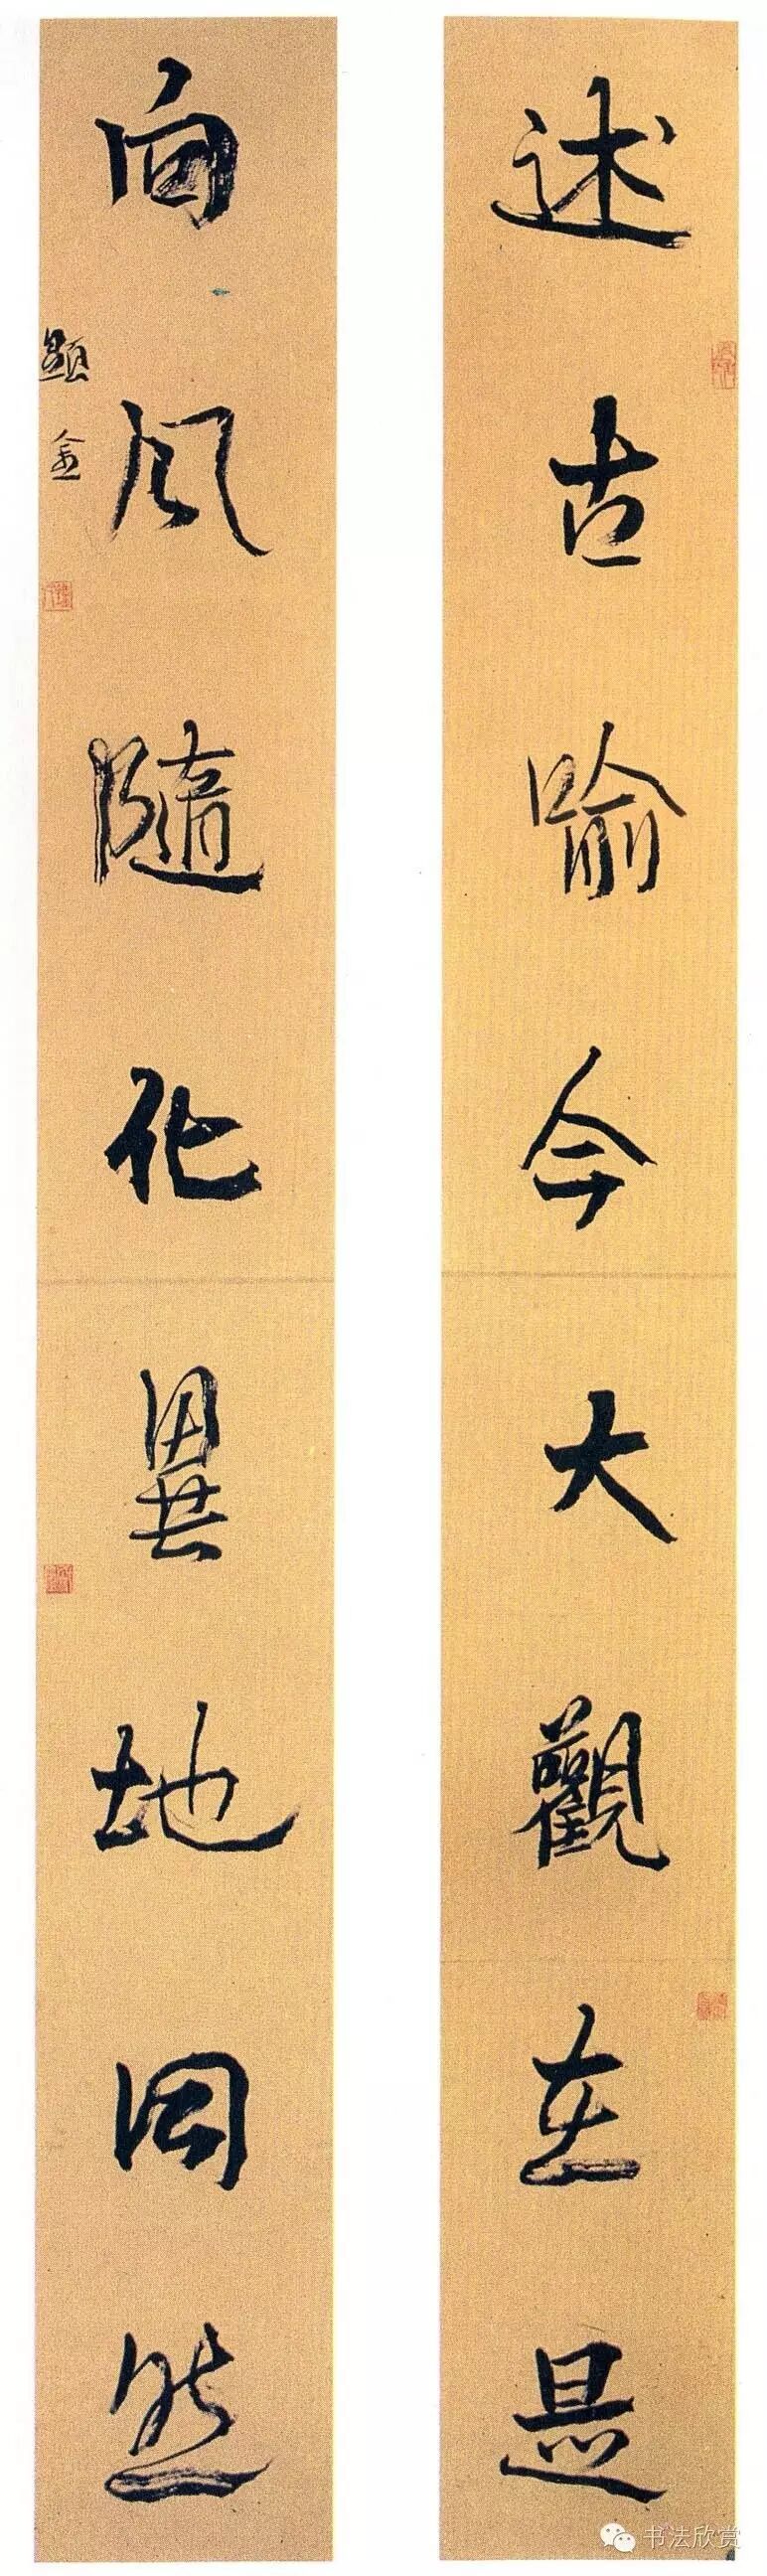 述古喻今大觀在是
向风隨化異地同然
书法欣赏